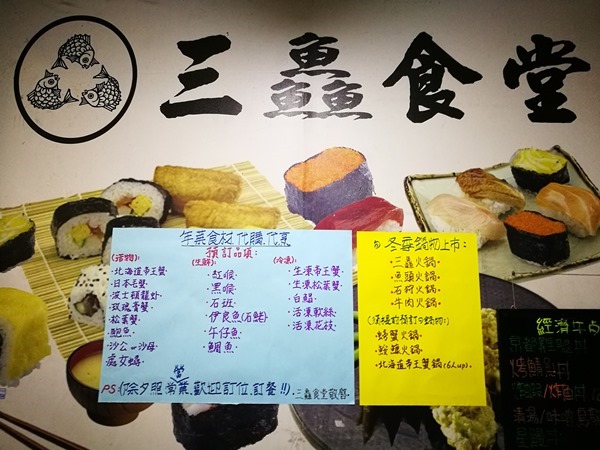 三鱻食堂
年菜食材.代購.代烹
預訂品項:
(活物):
·北海道帝王蟹
·日本毛蟹
·波士頓龍蝦
·玫瑰青蟹
·松葉蟹
·鮑魚
·沙公.沙母
·處女蟳
(生鮮):
·紅喉
·黑喉
·石斑
·午仔魚
·鯛魚
(冷凍):
·生凍帝王蟹
·生凍松葉蟹
·白鯧
·活凍軟絲
·活凍花枝
PS:(除夕照常營業,歡迎訂位.訂餐!!).三鱻食堂敬啓.
冬季鍋物上市:
·三鱻火鍋
·魚頭火鍋
·石狩火鍋
·牛肉火鍋
(須提前預訂鍋物):
·螃蟹火鍋
·鮟鱇火鍋
·北海道帝王蟹鍋(6人up)
經濟午